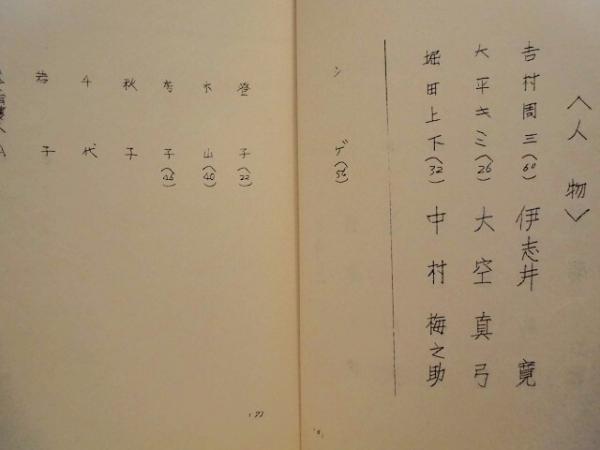 〈人物〉
吉村周三(60) 伊志井寛
大平キミ(26) 大空真弓
堀田上下(32) 中村梅之助
シゲ(56)
登子(22)
木山(40)
秋子
千代
若子